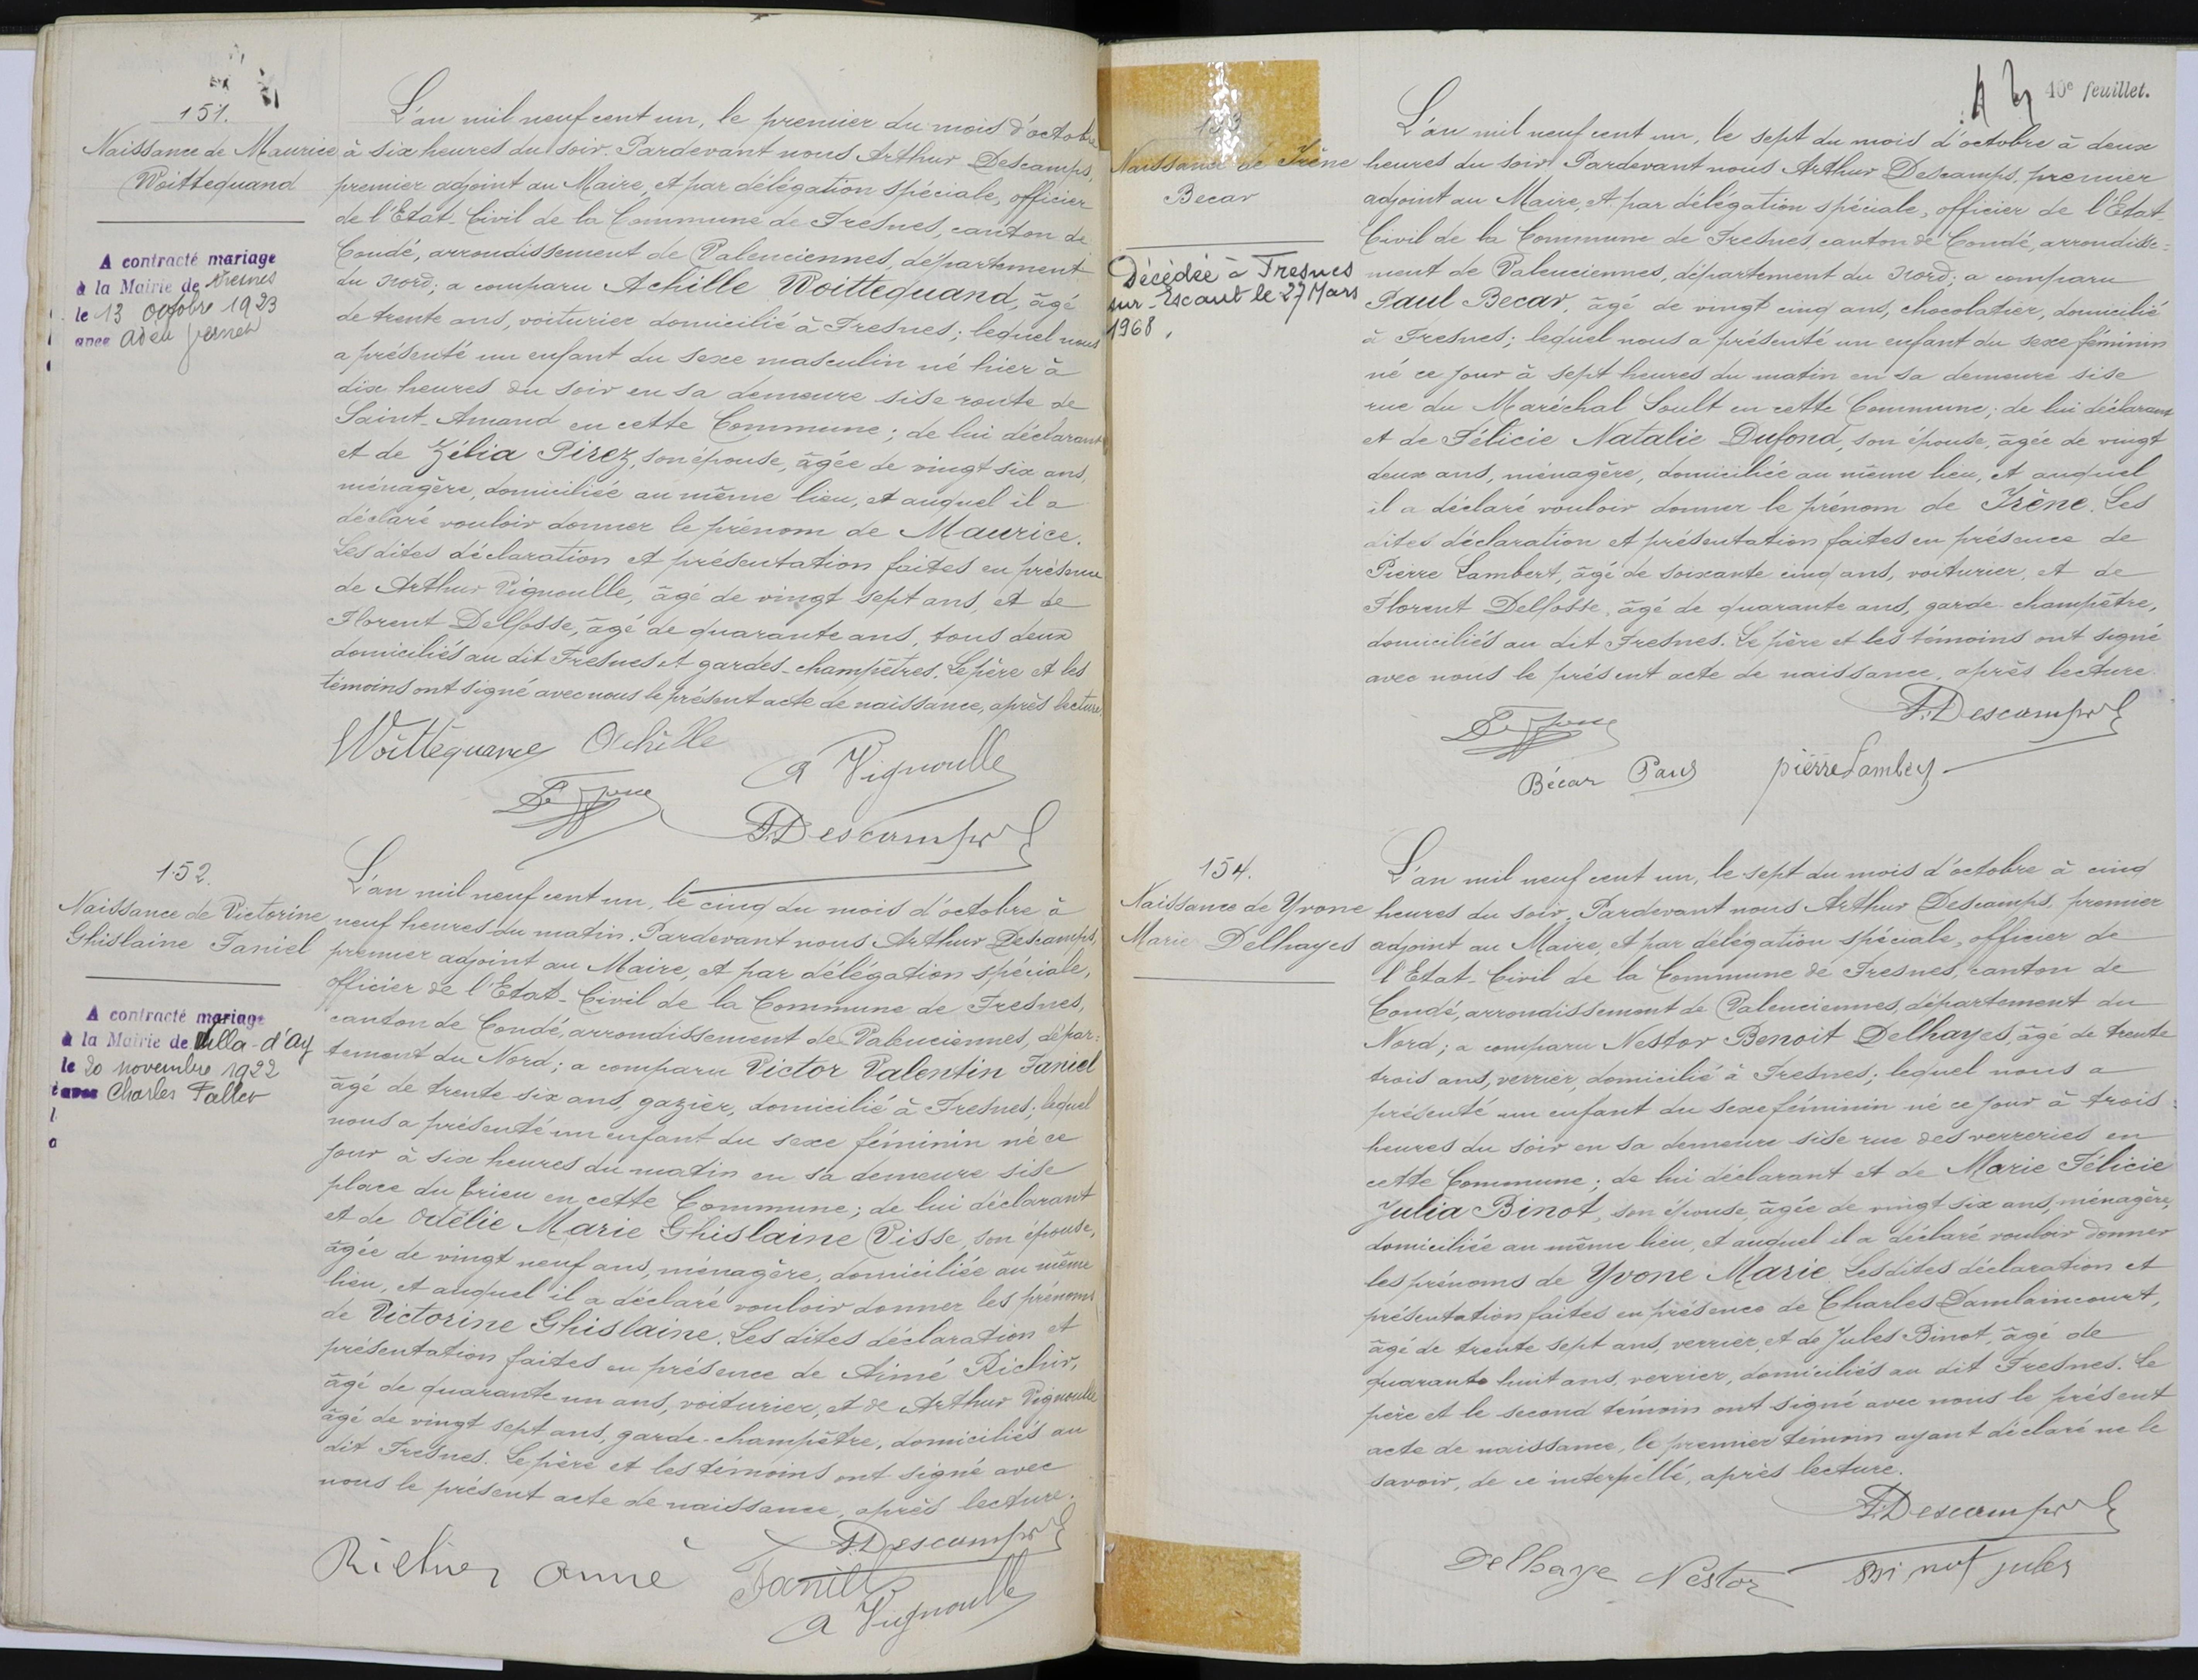 151.
Naissance de Maurice
Woittequand
A contracté mariage
à la Mairie de Fresnes
le 13 octobre 1923
avec
L'an mil neuf cent un, le premier du mois d'octobre
à six heures du soir. Pardevant nous Arthur Descamps,
premier adjoint au Maire, et par délégation spéciale, officier
de l'Etat-Civil de la Commune de Fresnes, canton de
Condé, arrondissement de Valenciennes, département
du Nord; a comparu Achille Woittequand, âgé
de trente ans, voiturier domicilié à Fresnes; lequel nous
a présenté un enfant du sexe masculin né hier à
dix heures du soir en sa demeure sise route de
Saint-Amand en cette Commune; de lui déclarant
et de Zélia Pirez, son épouse, âgée de vingt six ans,
ménagère, domiciliée au même lieu, et auquel il a
déclaré vouloir donner le prénom de Maurice.
Les dites déclaration et présentation faites en présence
de Arthur Vignoulle, âgé de vingt sept ans, et de
Florent Delfosse, âgé de quarante ans, tous deux
domiciliés au dit Fresnes et gardes-champêtres. Le père et les
témoins ont signé avec nous le présent acte de naissance, après lecture.
Woittequand Achille
A Vignoulle
A. Descamps
152.
Naissance de Victorine
Ghislaine Faniel
A contracté mariage
à la Mairie de Villa-d'Ay
le 20 novembre 1922
avec Charles Paller
L'an mil neuf cent un, le cinq du mois d'octobre à
neuf heures du matin. Pardevant nous Arthur Descamps,
premier adjoint au Maire, et par délégation spéciale,
officier de l'Etat-Civil de la Commune de Fresnes,
canton de Condé, arrondissement de Valenciennes, dépar=
tement du Nord; a comparu Victor Valentin Faniel
âgé de trente six ans, gazier, domicilié à Fresnes; lequel
nous a présenté un enfant du sexe féminin né ce
jour à six heures du matin en sa demeure sise
place du Trieu en cette Commune; de lui déclarant
et de Odélie Marie Ghislaine Visse, son épouse,
âgée de vingt neuf ans, ménagère, domiciliée au même
lieu, et auquel il a déclaré vouloir donner les prénoms
de Victorine Ghislaine. Les dites déclaration et
présentation faites en présence de Aimé Richir,
âgé de quarante un ans, voiturier, et de Arthur Vignoulle
âgé de vingt sept ans, garde-champêtre, domiciliés au
dit Fresnes. Le père et les témoins ont signé avec
nous le présent acte de naissance, après lecture.
A. Descamps
Faniel
A Vignoulle
40e feuillet.
153
Naissance de Irène
Becar
Décédée à Fresnes
sur Escaut le 27 Mars
1968.
L'an mil neuf cent un, le sept du mois d'octobre à deux
heures du soir. Pardevant nous Arthur Descamps, premier
adjoint au Maire, et par délégation spéciale, officier de l'Etat-
Civil de la Commune de Fresnes, canton de Condé, arrondisse=
ment de Valenciennes, département du Nord; a comparu
Paul Becar, âgé de vingt cinq ans, chocolatier, domicilié
à Fresnes; lequel nous a présenté un enfant du sexe féminin
né ce jour à sept heures du matin en sa demeure sise
rue du Maréchal Soult en cette Commune; de lui déclarant
et de Félicie Natalie Dufond, son épouse, âgée de vingt
deux ans, ménagère, domiciliée au même lieu, et auquel
il a déclaré vouloir donner le prénom de Irène. Les
dites déclaration et présentation faites en présence de
Pierre Lambert, âgé de soixante cinq ans, voiturier, et de
Florent Delfosse, âgé de quarante ans, garde-champêtre,
domiciliés au dit Fresnes. Le père et les témoins ont signé
avec nous le présent acte de naissance, après lecture.
A. Descamps
Bécar Paul
pierre Lambert
154.
Naissance de Yvone
Marie Delhayes
L'an mil neuf cent un, le sept du mois d'octobre à cinq
heures du soir. Pardevant nous Arthur Descamps, premier
adjoint au Maire, et par délégation spéciale, officier de
l'Etat-Civil de la Commune de Fresnes, canton de
Condé, arrondissement de Valenciennes, département du
Nord; a comparu Nestor Benoit Delhayes, âgé de trente
trois ans, verrier, domicilié à Fresnes; lequel nous a
présenté un enfant du sexe féminin né ce jour à trois
heures du soir en sa demeure sise rue des verreries en
cette Commune; de lui déclarant et de Marie Félicie
Julia Binot, son épouse, âgée de vingt six ans, ménagère,
domiciliée au même lieu, et auquel il a déclaré vouloir donner
les prénoms de Yvone Marie. Les dites déclaration et
présentation faites en présence de Charles Damlaincourt,
âgé de trente sept ans, verrier, et de Jules Binot, âgé de
quarante huit ans, verrier, domiciliés au dit Fresnes. Le
père et le second témoin ont signé avec nous le présent
acte de naissance, le premier témoin ayant déclaré ne le
savoir, de ce interpellé, après lecture.
A. Descamps
Delhaye Nestor
Binot jules